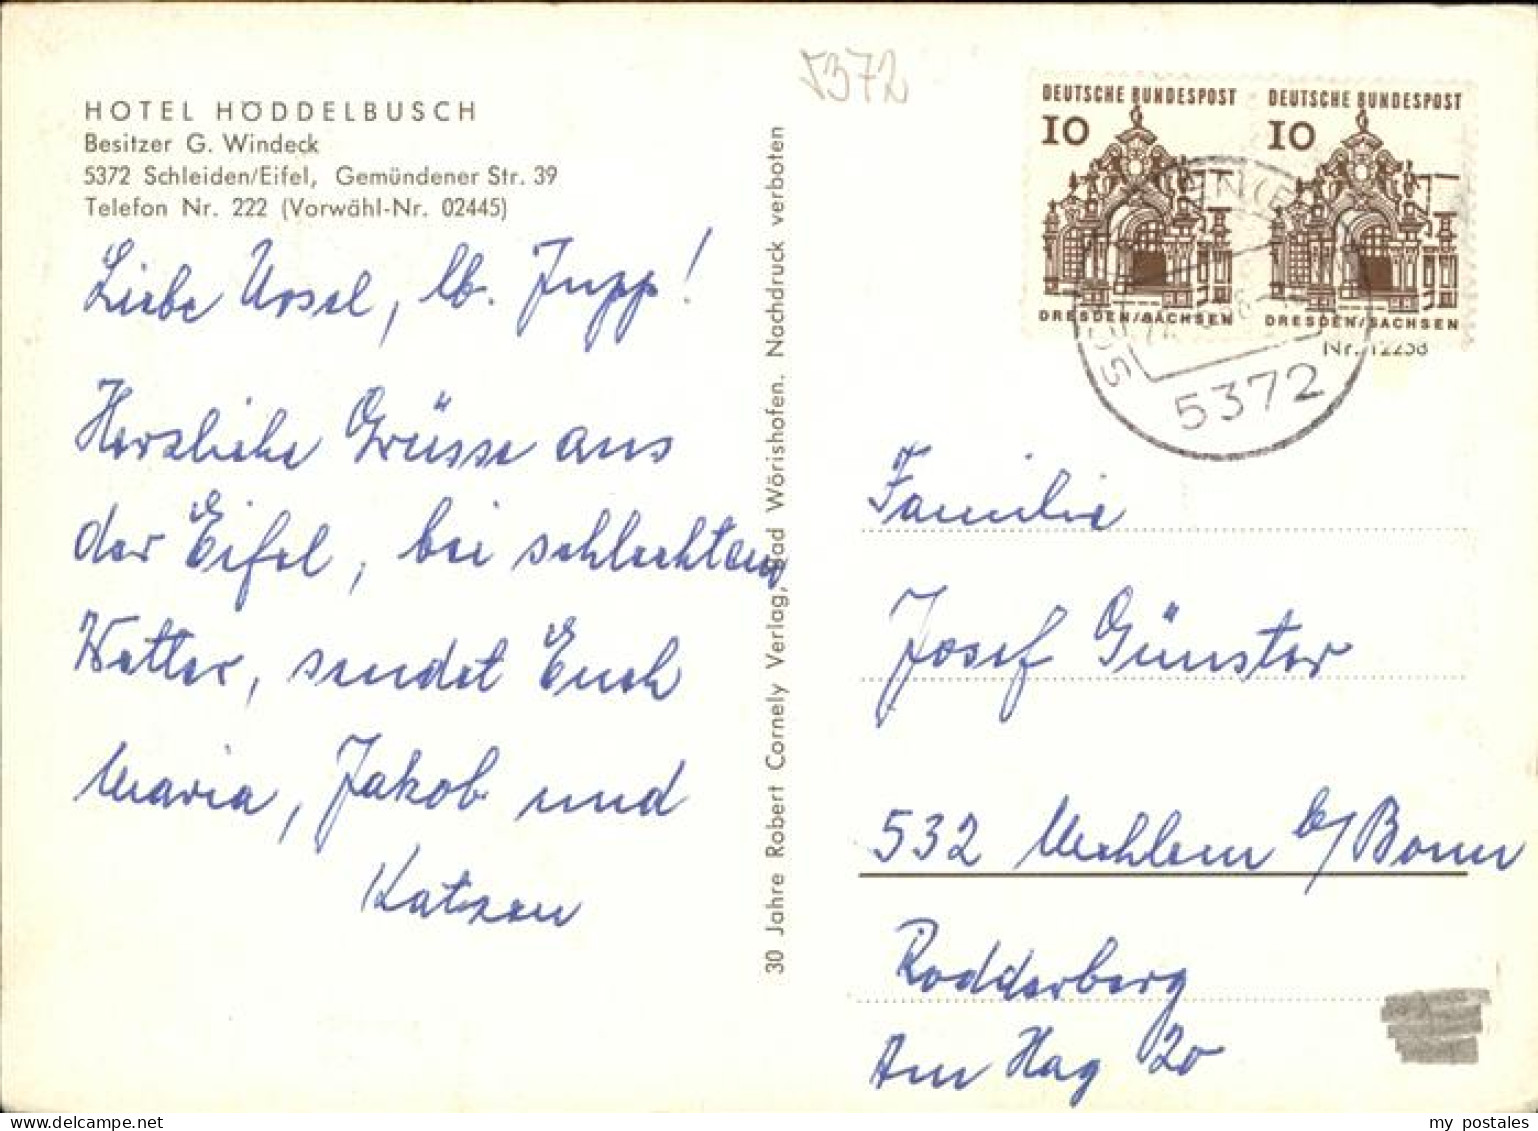 5372
HOTEL HÖDDELBUSCH
Besitzer G. Windeck
5372 Schleiden/Eifel, Gemündener Str. 39
Telefon Nr. 222 (Vorwähl-Nr. 02445)
Liebe Ursel, lb. Jupp!
Herzliche Grüsse aus
der Eifel, bei schlechtem
Wetter, sendet Euch
Maria, Jakob und
Katzen
30 Jahre Robert Cornely Verlag, Bad Wörishofen. Nachdruck verboten
DEUTSCHE BUNDESPOST
10
DRESDEN/SACHSEN
DEUTSCHE BUNDESPOST
10
DRESDEN/SACHSEN
Nr. 12258
5372
Familie
Josef Günster
532 Mehlem b/Bonn
Rodderberg
Am Hag 20
my postales